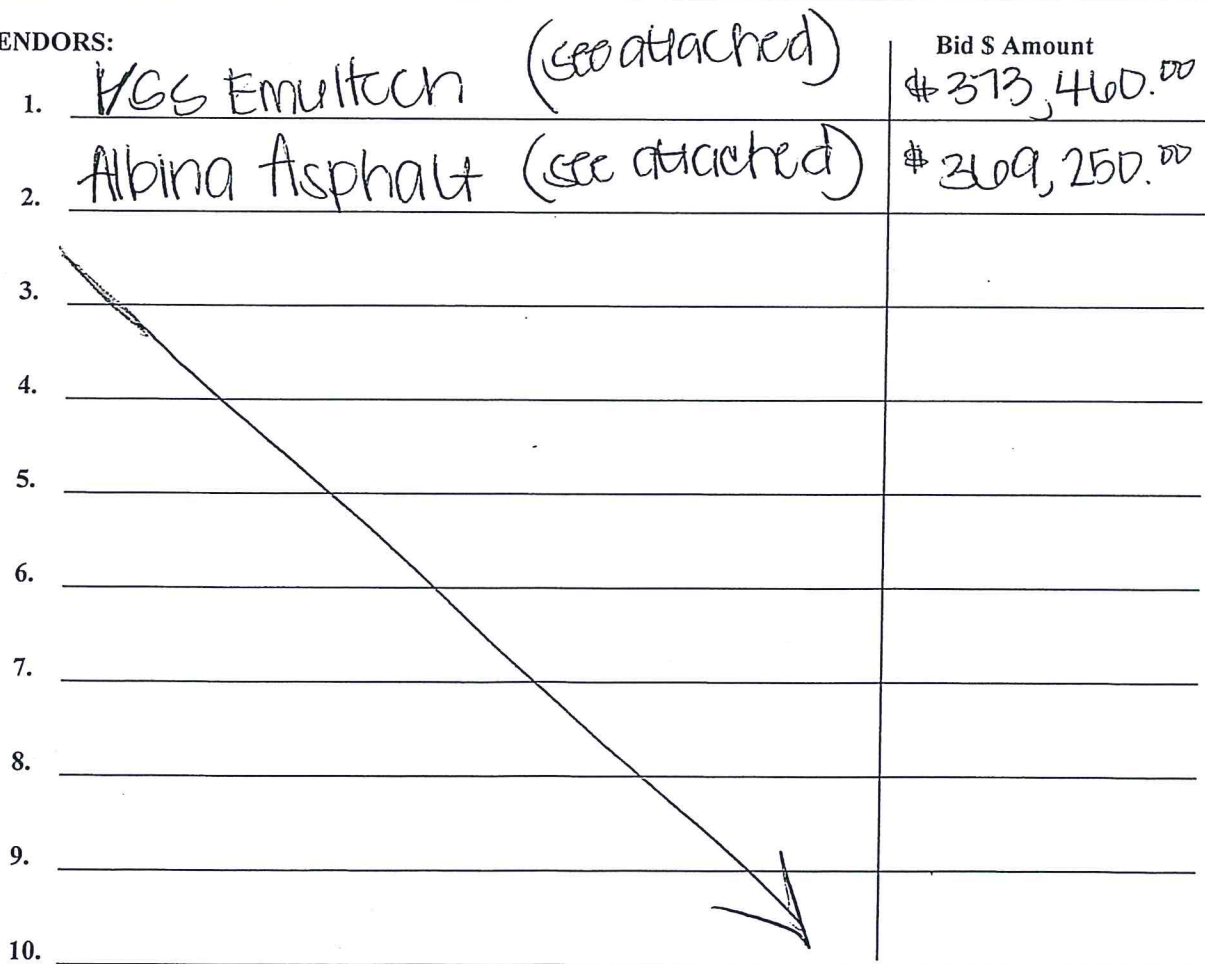 ENDORS: Bid $ Amount
1. VSS Emultech (see attached) $373,460.00
2. Albina Asphalt (see attached) $369,250.00
3.
4.
5.
6.
7.
8.
9.
10.